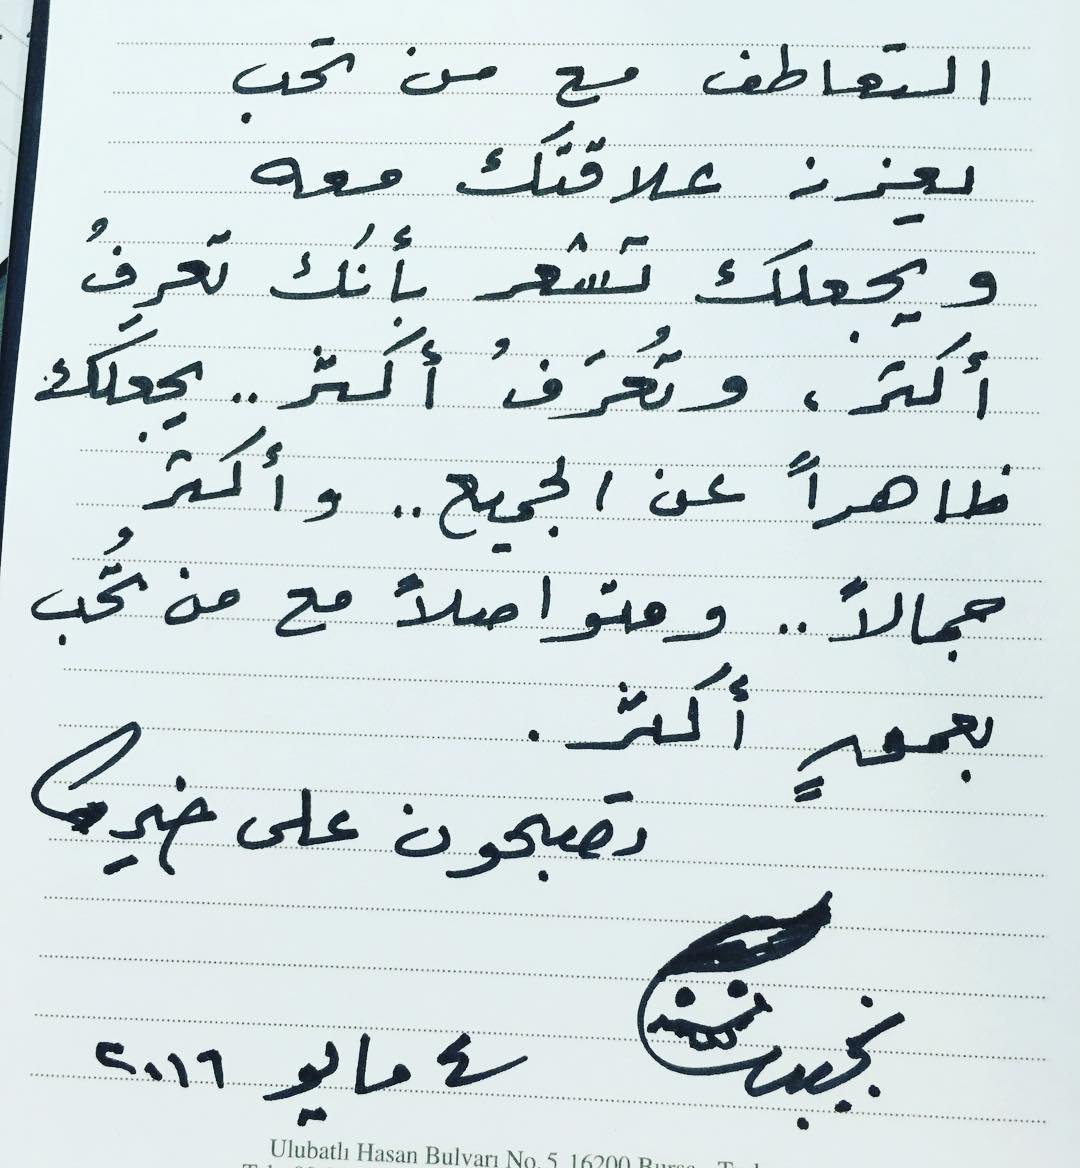 التعاطف مع من تحب
يعزز علاقتك معه
ويجعلك تشعر بأنك تعرفُ
أكثر ، وتُعرَفُ أكثر .. يجعلك
ظاهراً عن الجميع .. وأكثر
جمالاً .. ومتواصلاً مع من تُحب
بعمقٍ أكثر .
تصبحون على خير
٤ مايو ٢٠١٦
Ulubatlı Hasan Bulvarı No. 5 16200 Bursa